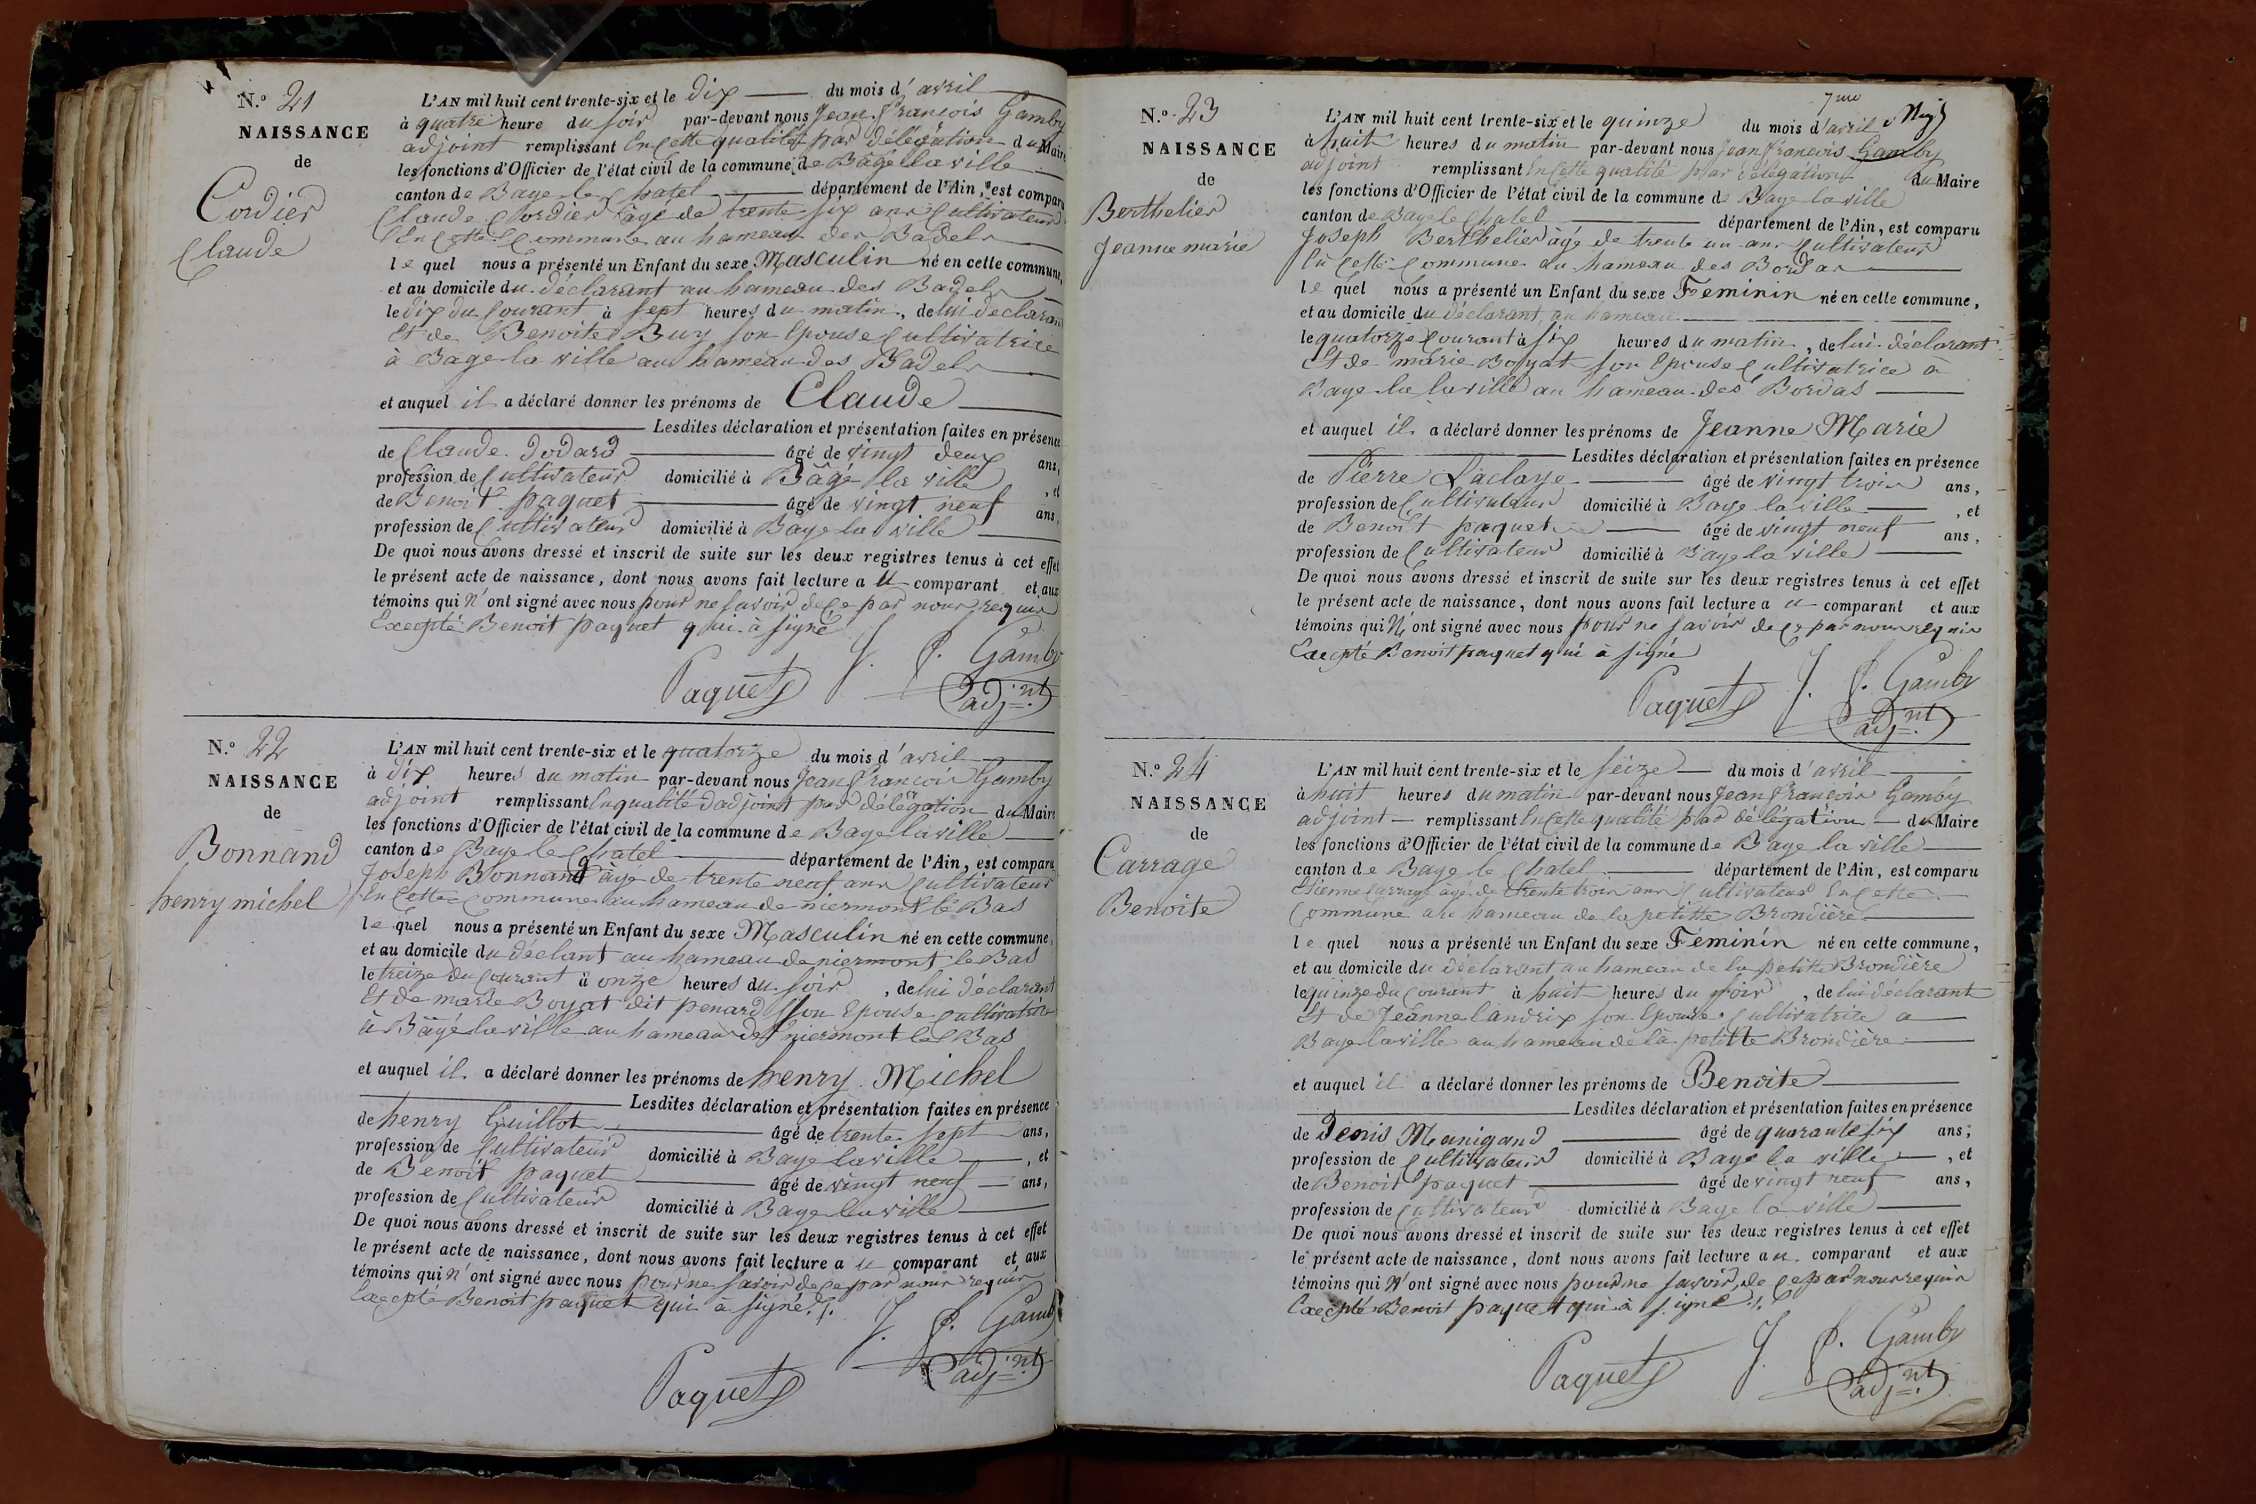 N.º 21
NAISSANCE
de
Cordier
Claude
L'AN mil huit cent trente-six et le dix du mois d'avril
à quatre heure du soir par-devant nous Jean François Gamby
adjoint remplissant en cette qualité par délégation du Maire
les fonctions d'Officier de l'état civil de la commune de Bâgé la ville
canton de Bage le Chatel département de l'Ain, est comparu
Claude Cordier âgé de trente six ans Cultivateur
En cette Commune au hameau des Badels
le quel nous a présenté un Enfant du sexe Masculin né en cette commune,
et au domicile du déclarant au hameau des Badels
le dix du Courant à sept heures du matin, de lui déclarant
Et de Benoite Buy son Epouse Cultivatrice
à Bage la ville au hameau des Badels
et auquel il a déclaré donner les prénoms de Claude
Lesdites déclaration et présentation faites en présence
de Claude Dodard âgé de vingt deux ans,
profession de Cultivateur domicilié à Bâgé la ville, et
de Benoit paquet âgé de vingt neuf ans,
profession de Cultivateur domicilié à Bage la ville
De quoi nous avons dressé et inscrit de suite sur les deux registres tenus à cet effet
le présent acte de naissance, dont nous avons fait lecture au comparant et aux
témoins qui n'ont signé avec nous pour ne savoir de ce par nous requis
Excepté Benoit paquet qui à signé
Paquet J. F. Gamby
adj.nt
N.º 22
NAISSANCE
de
Bonnand
henry michel
L'AN mil huit cent trente-six et le quatorze du mois d'avril
à dix heures du matin par-devant nous Jean François Gamby
adjoint remplissant En qualité d'adjoint par délégation du Maire
les fonctions d'Officier de l'état civil de la commune de Bage la ville
canton de Bage le Chatel département de l'Ain, est comparu
Joseph Bonnand âge de trente neuf ans Cultivateur
En Cette Commune au hameau de niermont le Bas
le quel nous a présenté un Enfant du sexe Masculin né en cette commune,
et au domicile du déclant au hameau de niermont le Bas
le treize du Courant à onze heures du soir, de lui déclarant
Et de marie Boyat dit penard son Epouse Cultivatrice
à Bâgé la ville au hameau de niermont le Bas
et auquel il a déclaré donner les prénoms de henry Michel
Lesdites déclaration et présentation faites en présence
de henry Guillot âgé de trente sept ans,
profession de Cultivateur domicilié à Bage la ville, et
de Benoit paquet âgé de vingt neuf ans,
profession de Cultivateur domicilié à Bage la ville
De quoi nous avons dressé et inscrit de suite sur les deux registres tenus à cet effet
le présent acte de naissance, dont nous avons fait lecture au comparant et aux
témoins qui n'ont signé avec nous pour ne savoir de ce par nous requis
Excepté Benoit paquet qui a signé
Paquet J. F. Gamby
adj.nt
7me
N.º 23
NAISSANCE
de
Berthelier
Jeanne marie
L'AN mil huit cent trente-six et le quinze du mois d'avril
à huit heures du matin par-devant nous Jean François Gamby
adjoint remplissant En Cette qualité par délégation du Maire
les fonctions d'Officier de l'état civil de la commune de Bage la ville
canton de Bage le Chatel département de l'Ain, est comparu
Joseph Berthelier âgé de trente un ans Cultivateur
En Cette Commune au hameau des Bordas
le quel nous a présenté un Enfant du sexe Féminin né en cette commune,
et au domicile du déclarant au hameau
le quatorze Courant à six heures du matin, de lui déclarant
Et de marie Boyat son Epouse Cultivatrice à
Bage la la ville au hameau des Bordas
et auquel il a déclaré donner les prénoms de Jeanne Marie
Lesdites déclaration et présentation faites en présence
de Pierre Laclaye âgé de vingt trois ans,
profession de Cultivateur domicilié à Bage la ville, et
de Benoit paquet âgé de vingt neuf ans,
profession de Cultivateur domicilié à Bage la ville
De quoi nous avons dressé et inscrit de suite sur les deux registres tenus à cet effet
le présent acte de naissance, dont nous avons fait lecture au comparant et aux
témoins qui N'ont signé avec nous pour ne savoir de ce par nous requis
Excepté Benoit paquet qui à signé
Paquet J. F. Gamby
adj.nt
N.º 24
NAISSANCE
de
Carrage
Benoite
L'AN mil huit cent trente-six et le seize du mois d'avril
à huit heures du matin par-devant nous Jean François Gamby
adjoint remplissant En Cette qualité par délégation du Maire
les fonctions d'Officier de l'état civil de la commune de Bage la ville
canton de Bage le Chatel département de l'Ain, est comparu
Etienne Carrage âgé de trente trois ans Cultivateur En Cette
Commune au hameau de la petitte Brondière
le quel nous a présenté un Enfant du sexe Féminin né en cette commune,
et au domicile du déclarant au hameau de la petitte Brondière
le quinze du Courant à huit heures du soir, de lui déclarant
Et de Jeanne Landrix son Epouse Cultivatrice a
Bage la ville au hameau de la petitte Brondière
et auquel il a déclaré donner les prénoms de Benoite
Lesdites déclaration et présentation faites en présence
de Denis Munigand âgé de quarante six ans,
profession de Cultivateur domicilié à Bagé la ville, et
de Benoit paquet âgé de vingt neuf ans,
profession de Cultivateur domicilié à Bage la ville
De quoi nous avons dressé et inscrit de suite sur les deux registres tenus à cet effet
le présent acte de naissance, dont nous avons fait lecture au comparant et aux
témoins qui N'ont signé avec nous pour ne savoir de ce par nous requis
Excepté Benoit paquet qui à signé
Paquet J. F. Gamby
adj.nt